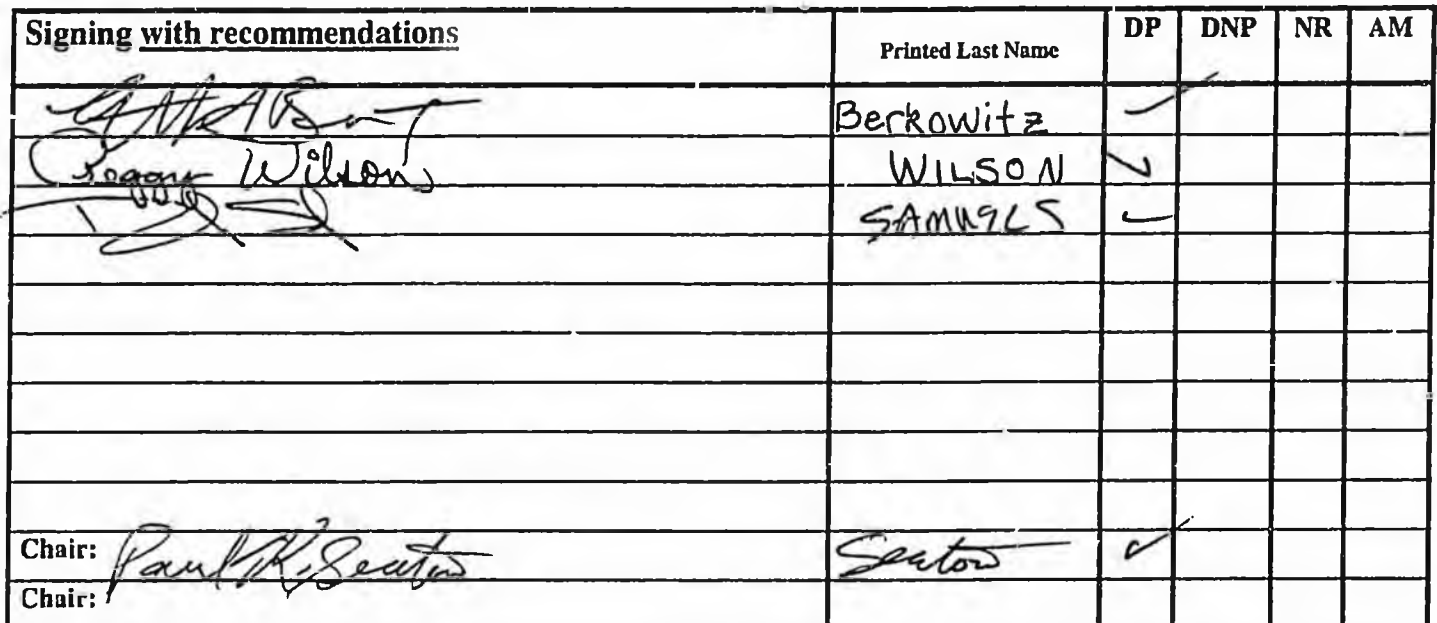 Signing with recommendations Printed Last Name DP DNP NR AM
Berkowitz ✓
Peggy Wilson WILSON ✓
SAMUELS ✓
Chair: Paul K. Seaton Seaton ✓
Chair: